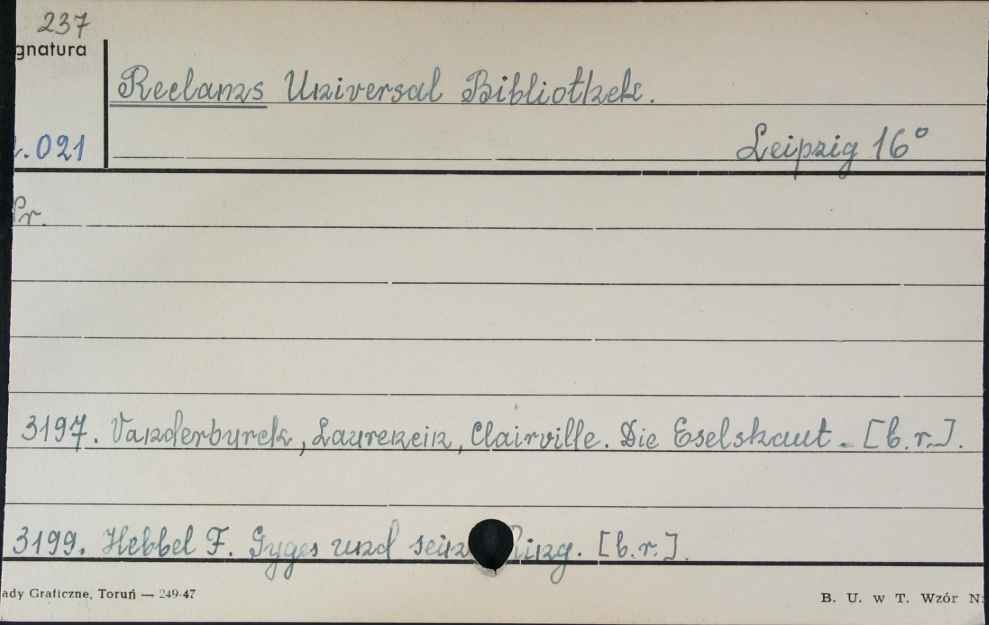 237
gnatura
Reclams Universal Bibliothek.
.021
Leipzig 16°
Pr.
3197. Vanderburck, Laurencin, Clairville. Die Eselshaut. [b.r.].
3199. Hebbel F. Gyges und sein Ring. [b.r.].
ady Graficzne, Toruń — 249-47
B. U. w T. Wzór N